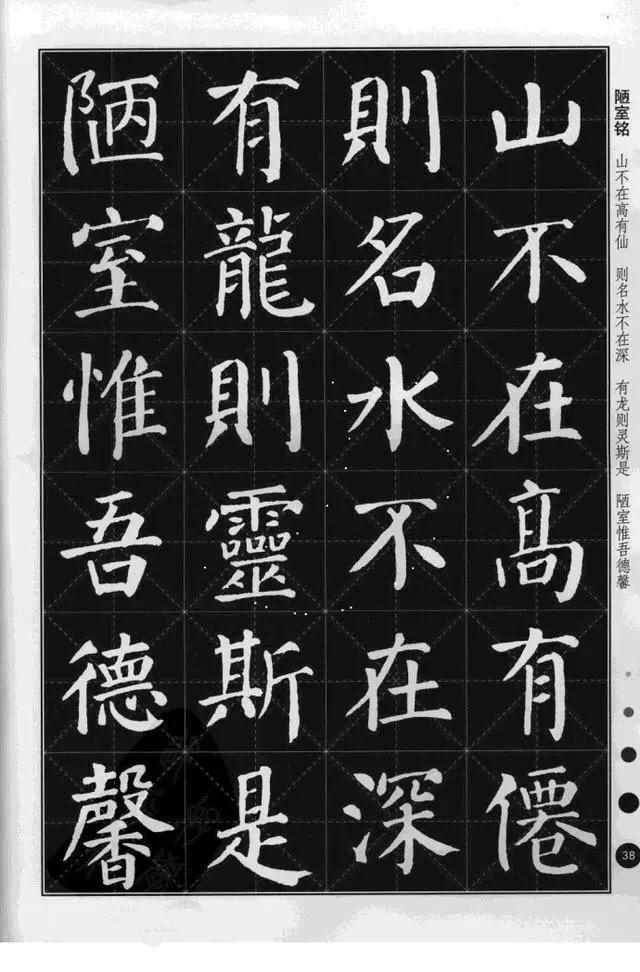 陋室铭
山不在高有仙 则名水不在深 有龙则灵斯是 陋室惟吾德馨
山不在高有僊
則名水不在深
有龍則靈斯是
陋室惟吾德馨
38